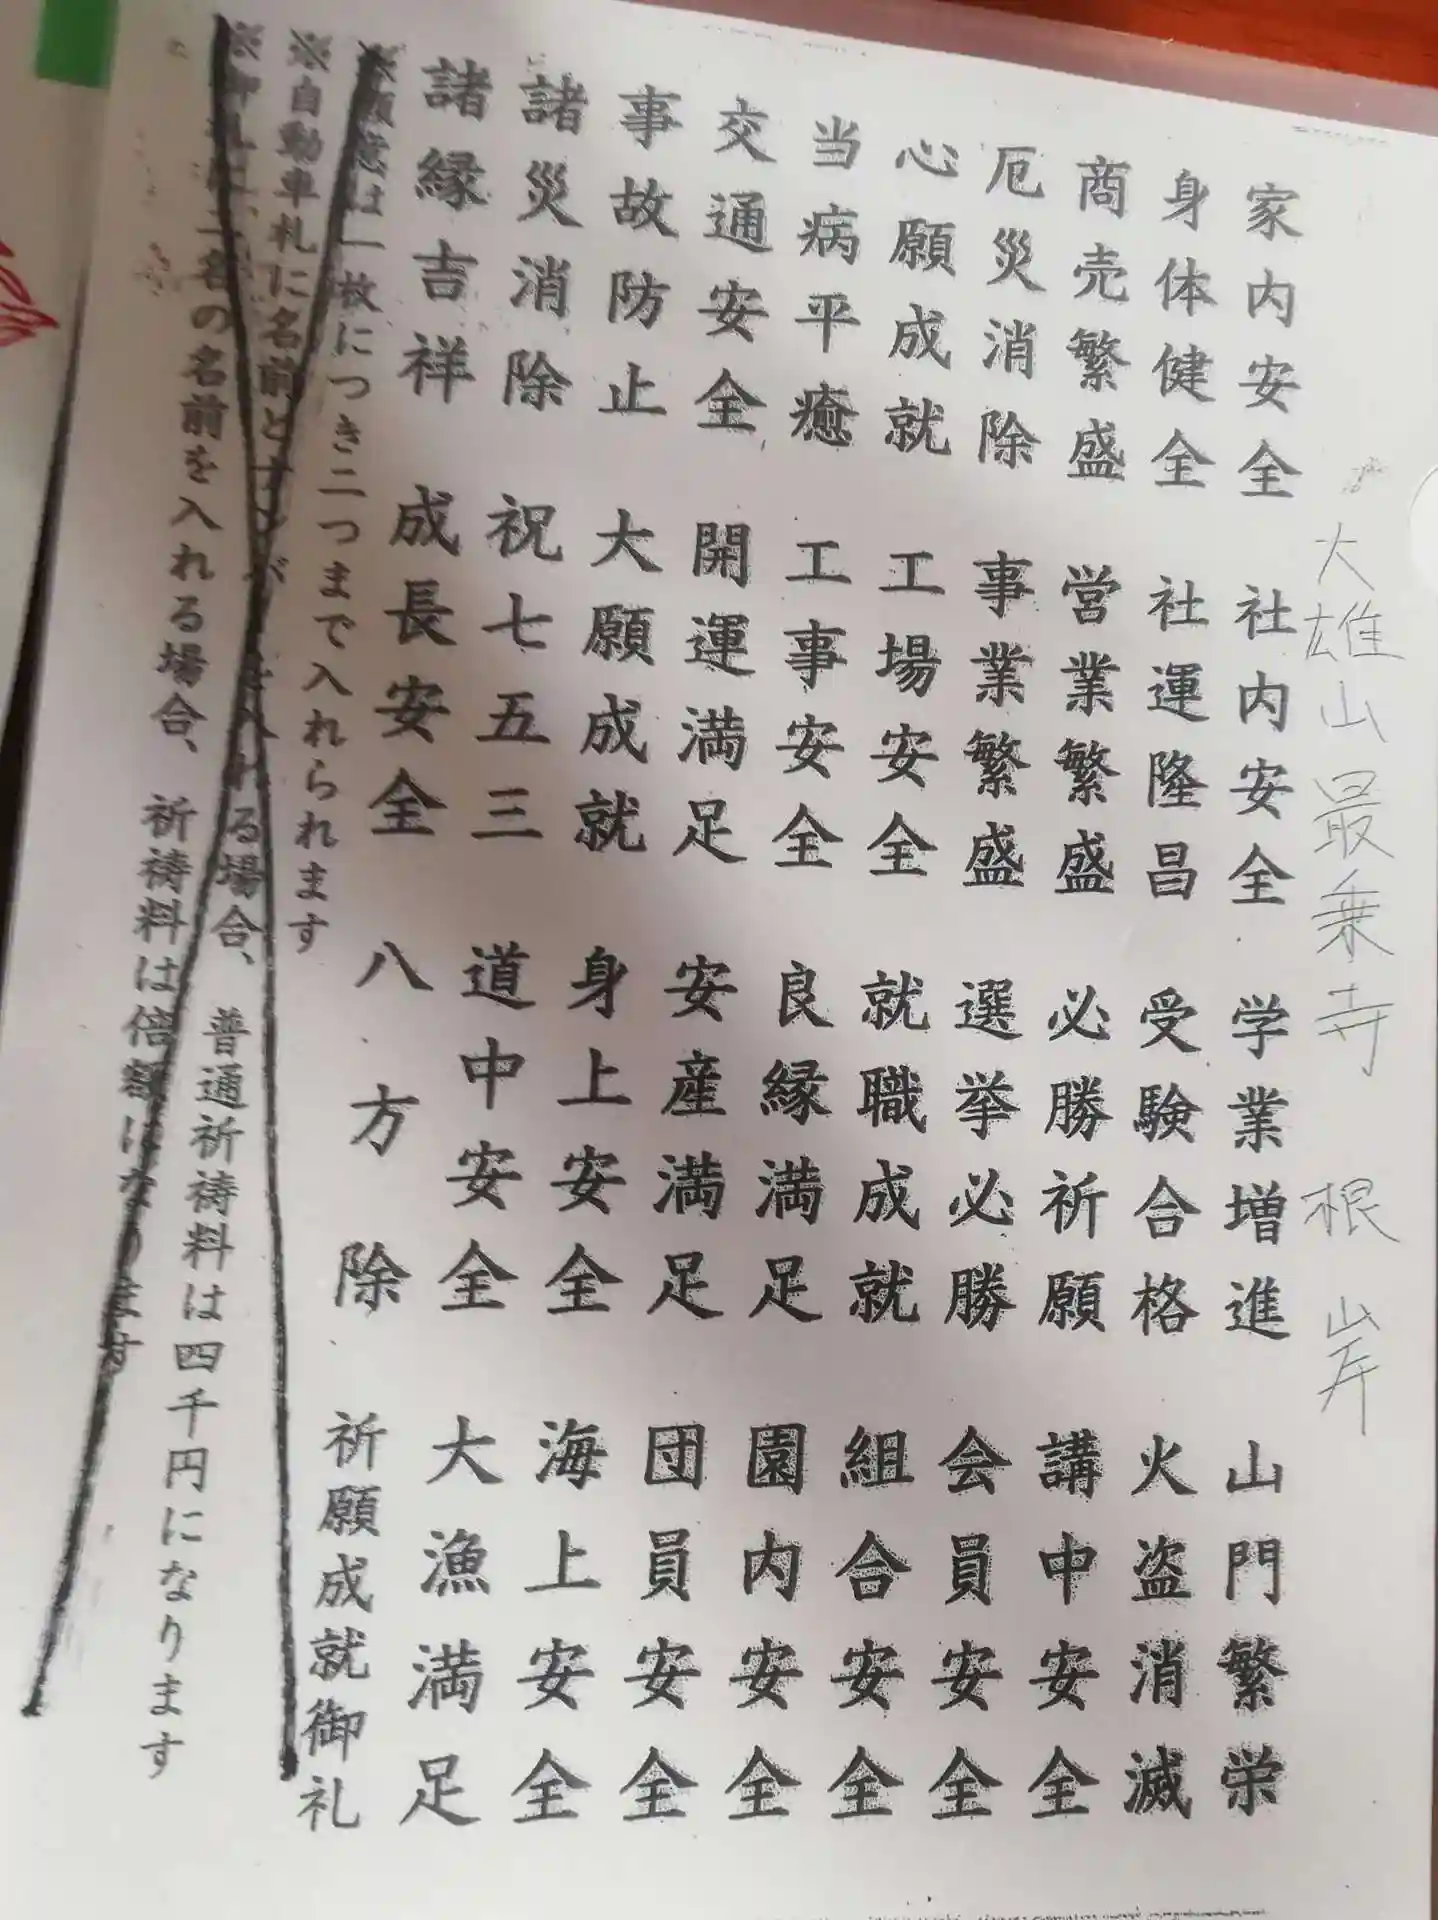 大雄山最乗寺 根岸
家内安全 社内安全 学業増進 山門繁栄
身体健全 社運隆昌 受験合格 火盗消滅
商売繁盛 営業繁盛 必勝祈願 講中安全
厄災消除 事業繁盛 選挙必勝 会員安全
心願成就 工場安全 就職成就 組合安全
当病平癒 工事安全 良縁満足 園内安全
交通安全 開運満足 安産満足 団員安全
事故防止 大願成就 身上安全 海上安全
諸災消除 祝七五三 道中安全 大漁満足
諸縁吉祥 成長安全 八方除 祈願成就御礼
※願意は一枚につき二つまで入れられます
※自動車札に名前とナンバーを入れる場合、普通祈祷料は四千円になります
※御札に二名の名前を入れる場合、祈祷料は倍額になります